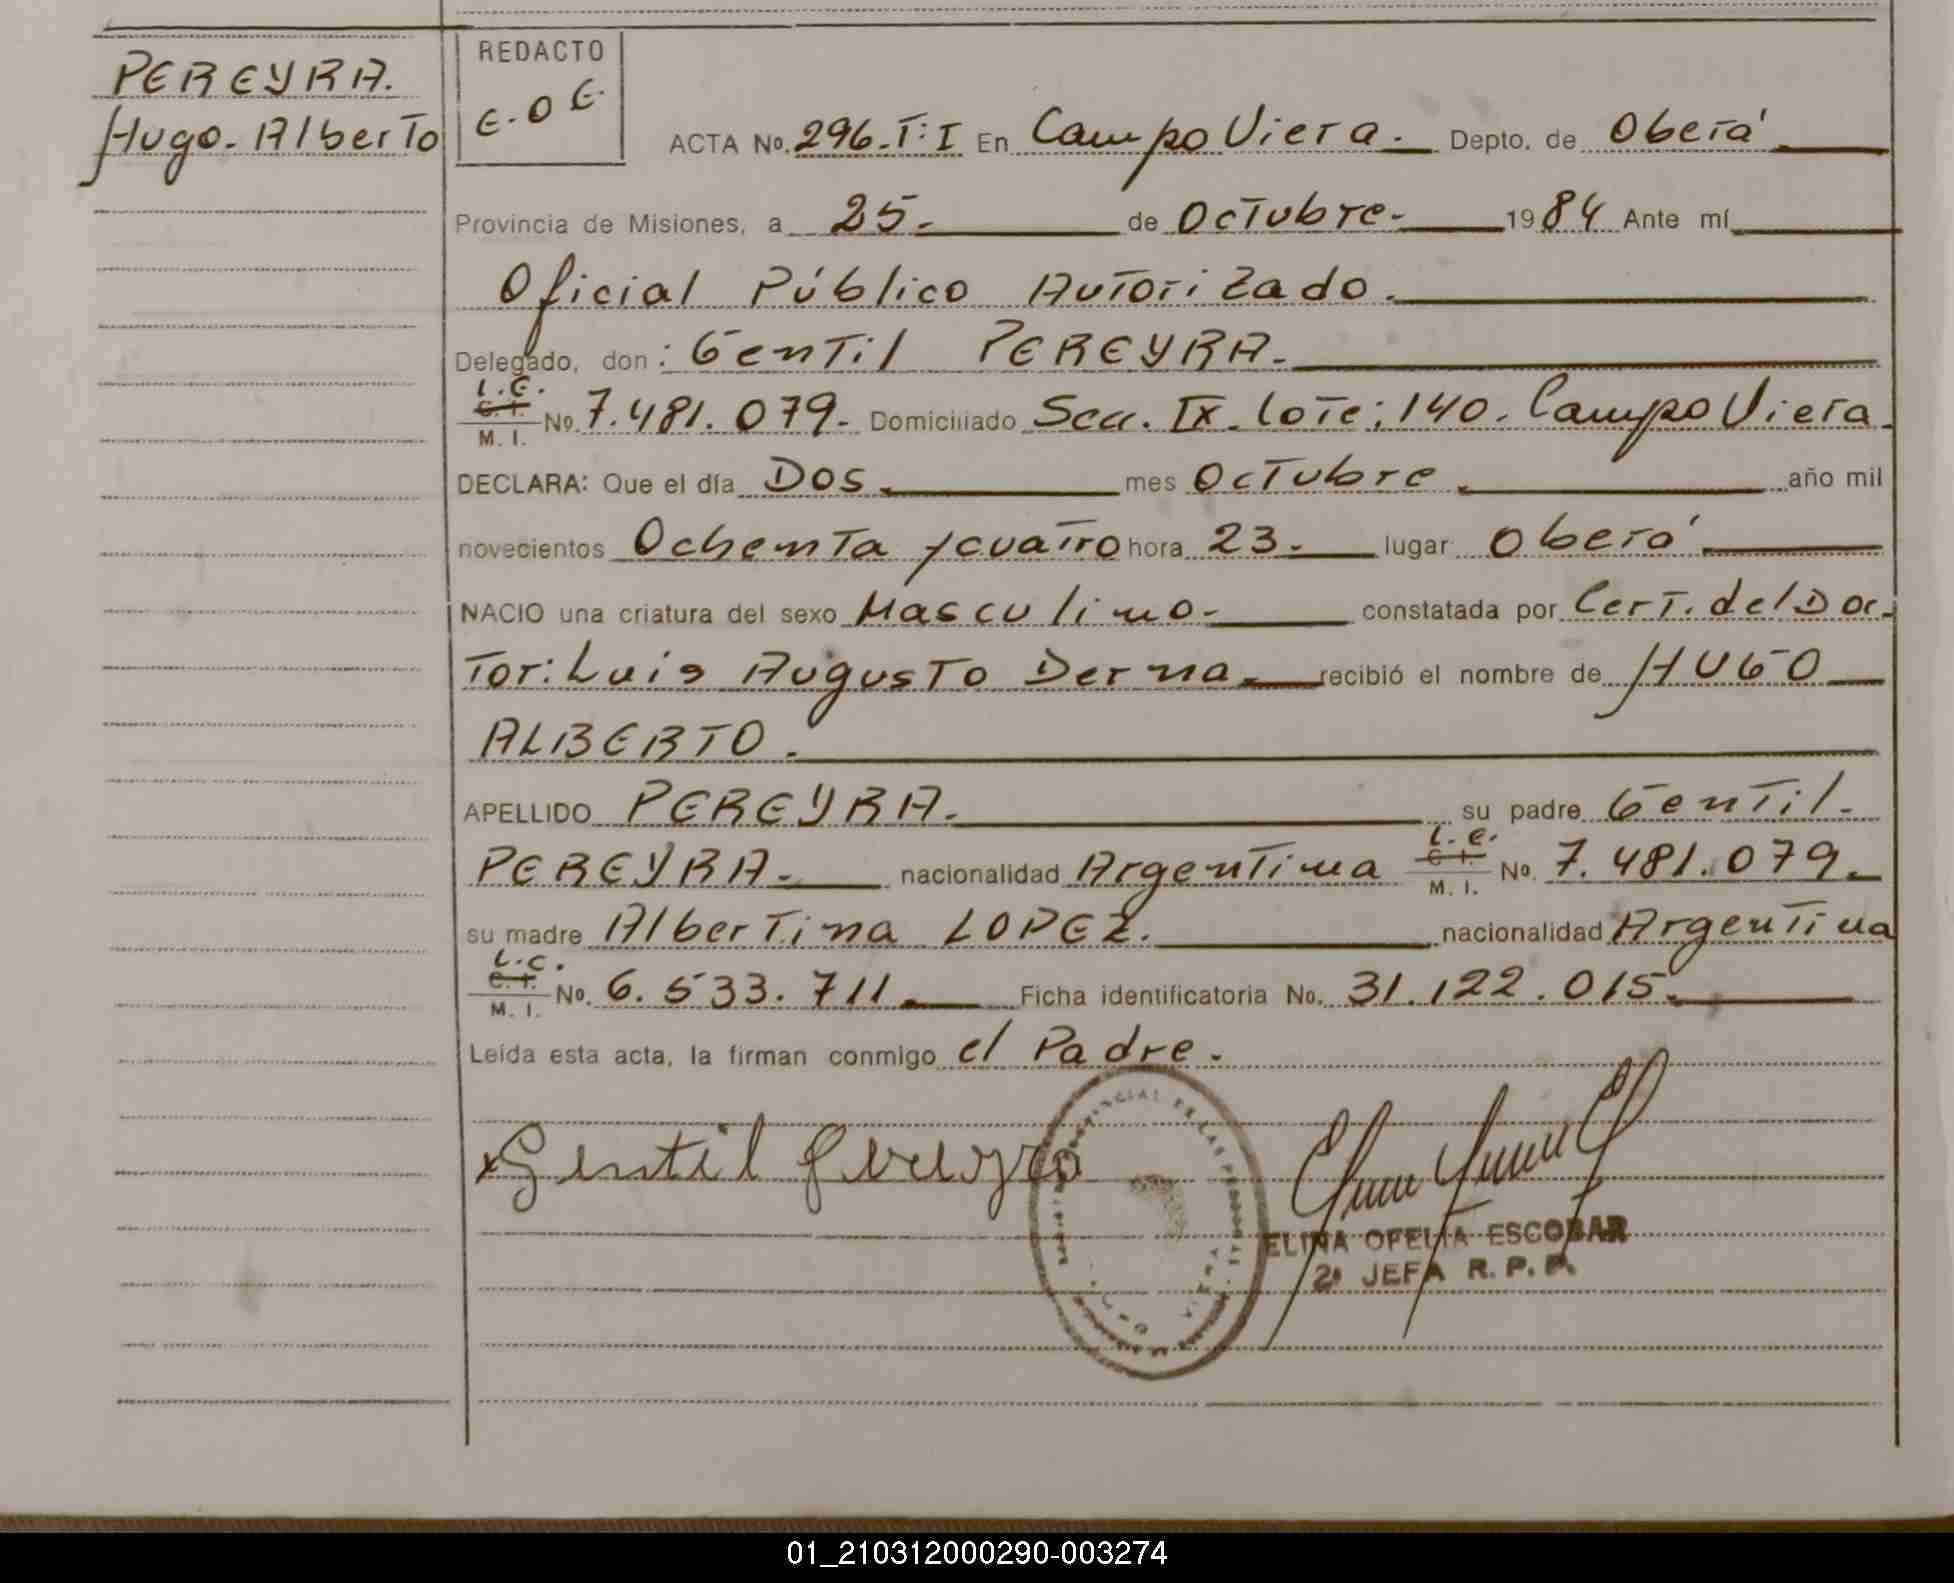 PEREYRA.
Hugo. Alberto
REDACTO
E.O E.
ACTA No. 296.T:I En Campo Viera. Depto. de Oberá
Provincia de Misiones, a 25. de Octubre. 1984 Ante mí
Oficial Público Autorizado.
Delegado, don: Gentil PEREYRA.
L.E.
C. I.
M. I.
No. 7.481.079. Domiciliado Secc. IX. Lote; 140. Campo Viera.
DECLARA: Que el día DOS. mes Octubre. año mil
novecientos Ochenta y cuatro hora 23. lugar Oberá
NACIO una criatura del sexo Masculino. constatada por Cert. del Doc-
tor: Luis Augusto Derna. recibió el nombre de HUGO
ALBERTO.
APELLIDO PEREYRA. su padre Gentil.
PEREYRA. nacionalidad Argentina
L.E.
C. I.
M. I.
No. 7.481.079.
su madre Albertina LOPEZ. nacionalidad Argentina
L.C.
C. I.
M. I.
No. 6.533.711. Ficha identificatoria No. 31.122.015.
Leída esta acta, la firman conmigo el Padre.
x Gentil Pereyra
ELINA OFELIA ESCOBAR
2ª JEFA R. P. P.
01_210312000290-003274